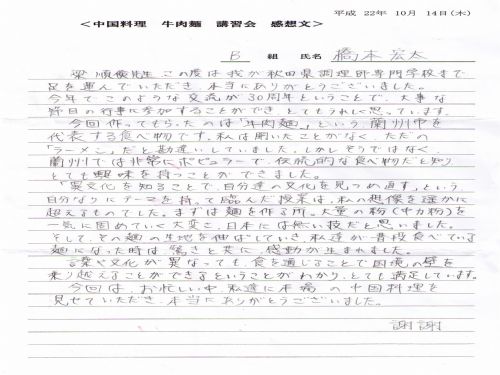 平成 22年 10月 14日(木)
<中国料理 牛肉麺 講習会 感想文>
B 組 氏名 橋本 宏太
梁 順俊先生 この度は我が秋田県調理師専門学校まで
足を運んでいただき、本当にありがとうございました。
今年で このような交流が30周年ということで 大事な
節目の行事に参加することができ とてもうれしく思っています。
今回作ってもらったのは「牛肉麺」という蘭州市を
代表する食べ物です。私は聞いたことがなく ただの
「ラーメン」だと勘違いしていました。しかしそうではなく、
蘭州では非常にポピュラーで、伝統的な食べ物だと知り
とても興味を持つことができました。
「異文化を知ることで、自分達の文化を見つめ直す」という
自分なりにテーマを持って臨んだ授業は、私の想像を遥かに
超えるものでした。まずは麺を作る所。大量の粉(中力粉)を
一気に固めていく大変さ、日本には無い技だと思いました。
そして、その麺の生地を伸ばしていき 私達が普段食べている
麺になった時は 驚きと共に 感動が生まれました。
言葉や文化が異なっても 食を通じることで 国境の壁を
乗り越えることができるということがわかり、とても満足しています。
今回は、お忙しい中 私達に本場の中国料理を
見せていただき、本当にありがとうございました。
謝謝